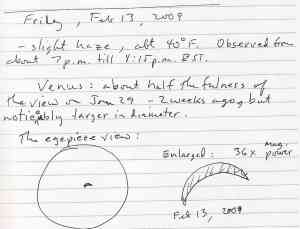 Friday, Feb 13, 2009
- slight haze, abt 40°F. Observed from
about 7 p.m. till 7:15 p.m. EST.
Venus: about half the fulness of
the view on Jan 29 - 2 weeks ago, but
noticeably larger in diameter.
The eyepiece view:
Enlarged: 36x mag. power
Feb 13, 2009